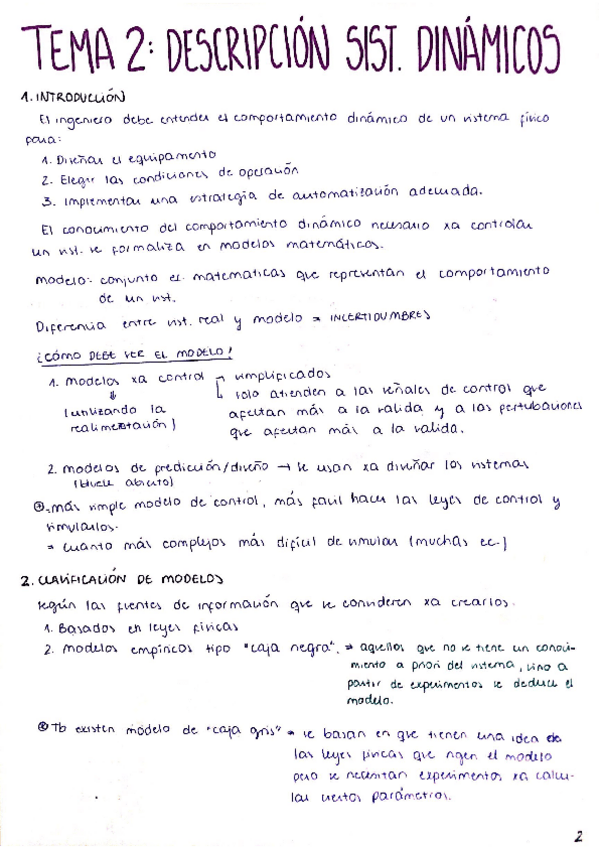 TEMA 2: DESCRIPCIÓN SIST. DINÁMICOS
1. INTRODUCCIÓN
El ingeniero debe entender el comportamiento dinámico de un sistema físico
para:
1. Diseñar el equipamento
2. Elegir las condiciones de operación
3. Implementar una estrategia de automatización adecuada.
El conocimiento del comportamiento dinámico necesario xa controlar
un sist. se formaliza en modelos matemáticos.
modelo: conjunto ec. matematicas que representan el comportamiento
de un sist.
Diferencia entre sist. real y modelo = INCERTIDUMBRES
¿CÓMO DEBE SER EL MODELO?
1. modelos xa control → simplificados
↳ solo atienden a las señales de control que
(utilizando la afectan más a la salida y a las perturbaciones
realimentación) que afectan más a la salida.
2. modelos de predicción/diseño → se usan xa diseñar los sistemas
(bucle abierto)
más simple modelo de control, más facil hacer las leyes de control y
simularlos.
= cuanto más complejos más difícil de simular (muchas ec.)
2. CLASIFICACIÓN DE MODELOS
según las fuentes de información que se consideren xa crearlos.
1. Basados en leyes físicas
2. modelos empíricos tipo "caja negra". ⇒ aquellos que no se tiene un conoci-
miento a priori del sistema, sino a
partir de experimentos se deduce el
modelo.
⊗ Tb existen modelo de "caja gris" = se basan en que tienen una idea de
las leyes físicas que rigen el modelo
pero se necesitan experimentos xa calcu-
lar ciertos parámetros.
2